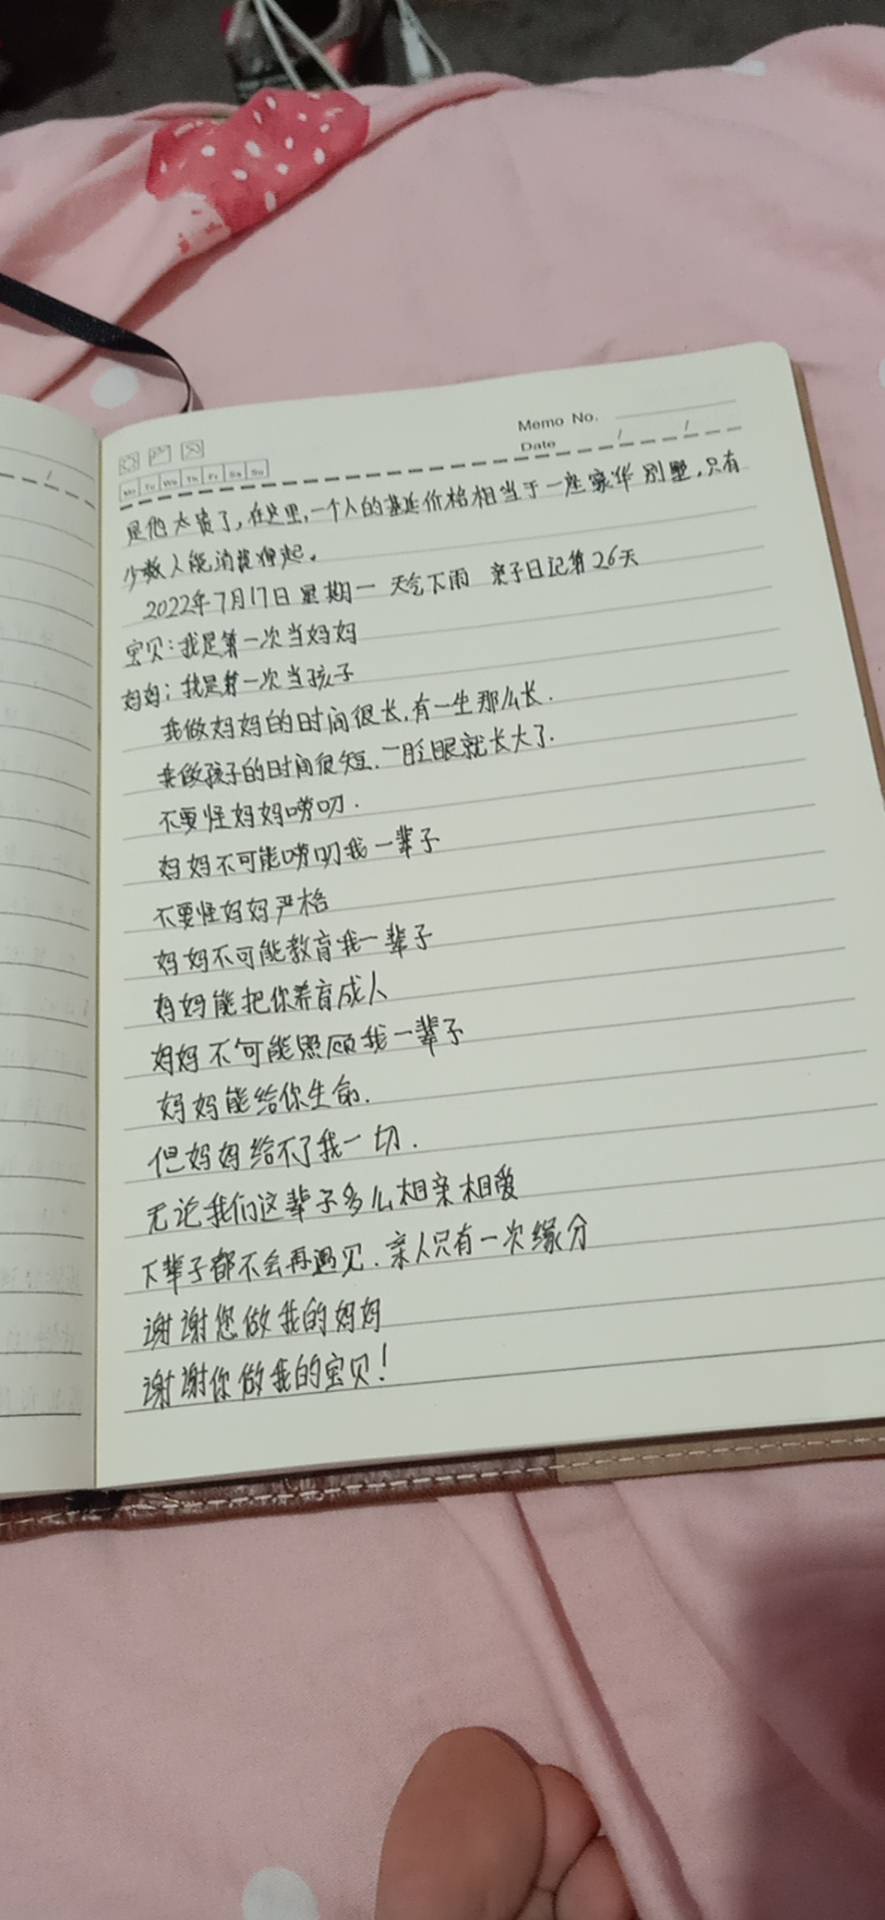 Memo No.
Date / /
Mo Tu We Th Fr Sa Su
是他太贵了,在这里,一个人的基延价格相当于一座豪华别墅,只有
少数人能消费得起。
2022年7月17日 星期一 天气下雨 亲子日记第26天
宝贝:我是第一次当妈妈
妈妈:我是第一次当孩子
我做妈妈的时间很长,有一生那么长.
我做孩子的时间很短.一眨眼就长大了.
不要怪妈妈唠叨.
妈妈不可能唠叨我一辈子
不要怪妈妈严格
妈妈不可能教育我一辈子
妈妈能把你养育成人
妈妈不可能照顾我一辈子
妈妈能给你生命.
但妈妈给不了我一切.
无论我们这辈子多么相亲相爱
下辈子都不会再遇见.亲人只有一次缘分
谢谢您做我的妈妈
谢谢你做我的宝贝!